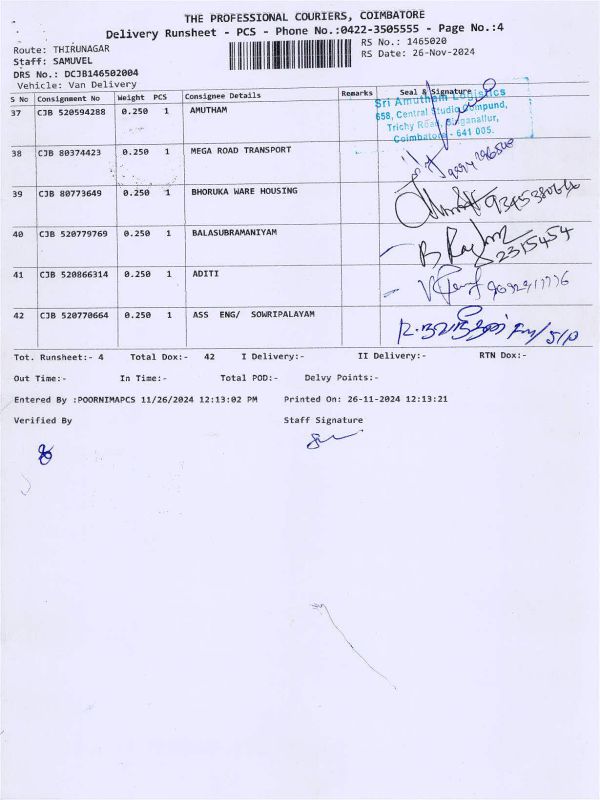 THE PROFESSIONAL COURIERS, COIMBATORE
Delivery Runsheet - PCS - Phone No.:0422-3505555 - Page No.:4
Route: THIRUNAGAR
RS No.: 1465020
Staff: SAMUVEL
RS Date: 26-Nov-2024
DRS No.: DCJB146502004
Vehicle: Van Delivery
S No Consignment No Weight PCS Consignee Details Remarks Seal & Signature
37 CJB 520594288 0.250 1 AMUTHAM
Sri Amutham Logistics
658, Central Studio Compund,
Trichy Road, Singanallur,
Coimbatore - 641 005.
38 CJB 80374423 0.250 1 MEGA ROAD TRANSPORT
39 CJB 80773649 0.250 1 BHORUKA WARE HOUSING
40 CJB 520779769 0.250 1 BALASUBRAMANIYAM
2315454
41 CJB 520866314 0.250 1 ADITI
42 CJB 520770664 0.250 1 ASS ENG/ SOWRIPALAYAM
Tot. Runsheet:- 4 Total Dox:- 42 I Delivery:- II Delivery:- RTN Dox:-
Out Time:- In Time:- Total POD:- Delvy Points:-
Entered By :POORNIMAPCS 11/26/2024 12:13:02 PM Printed On: 26-11-2024 12:13:21
Verified By Staff Signature